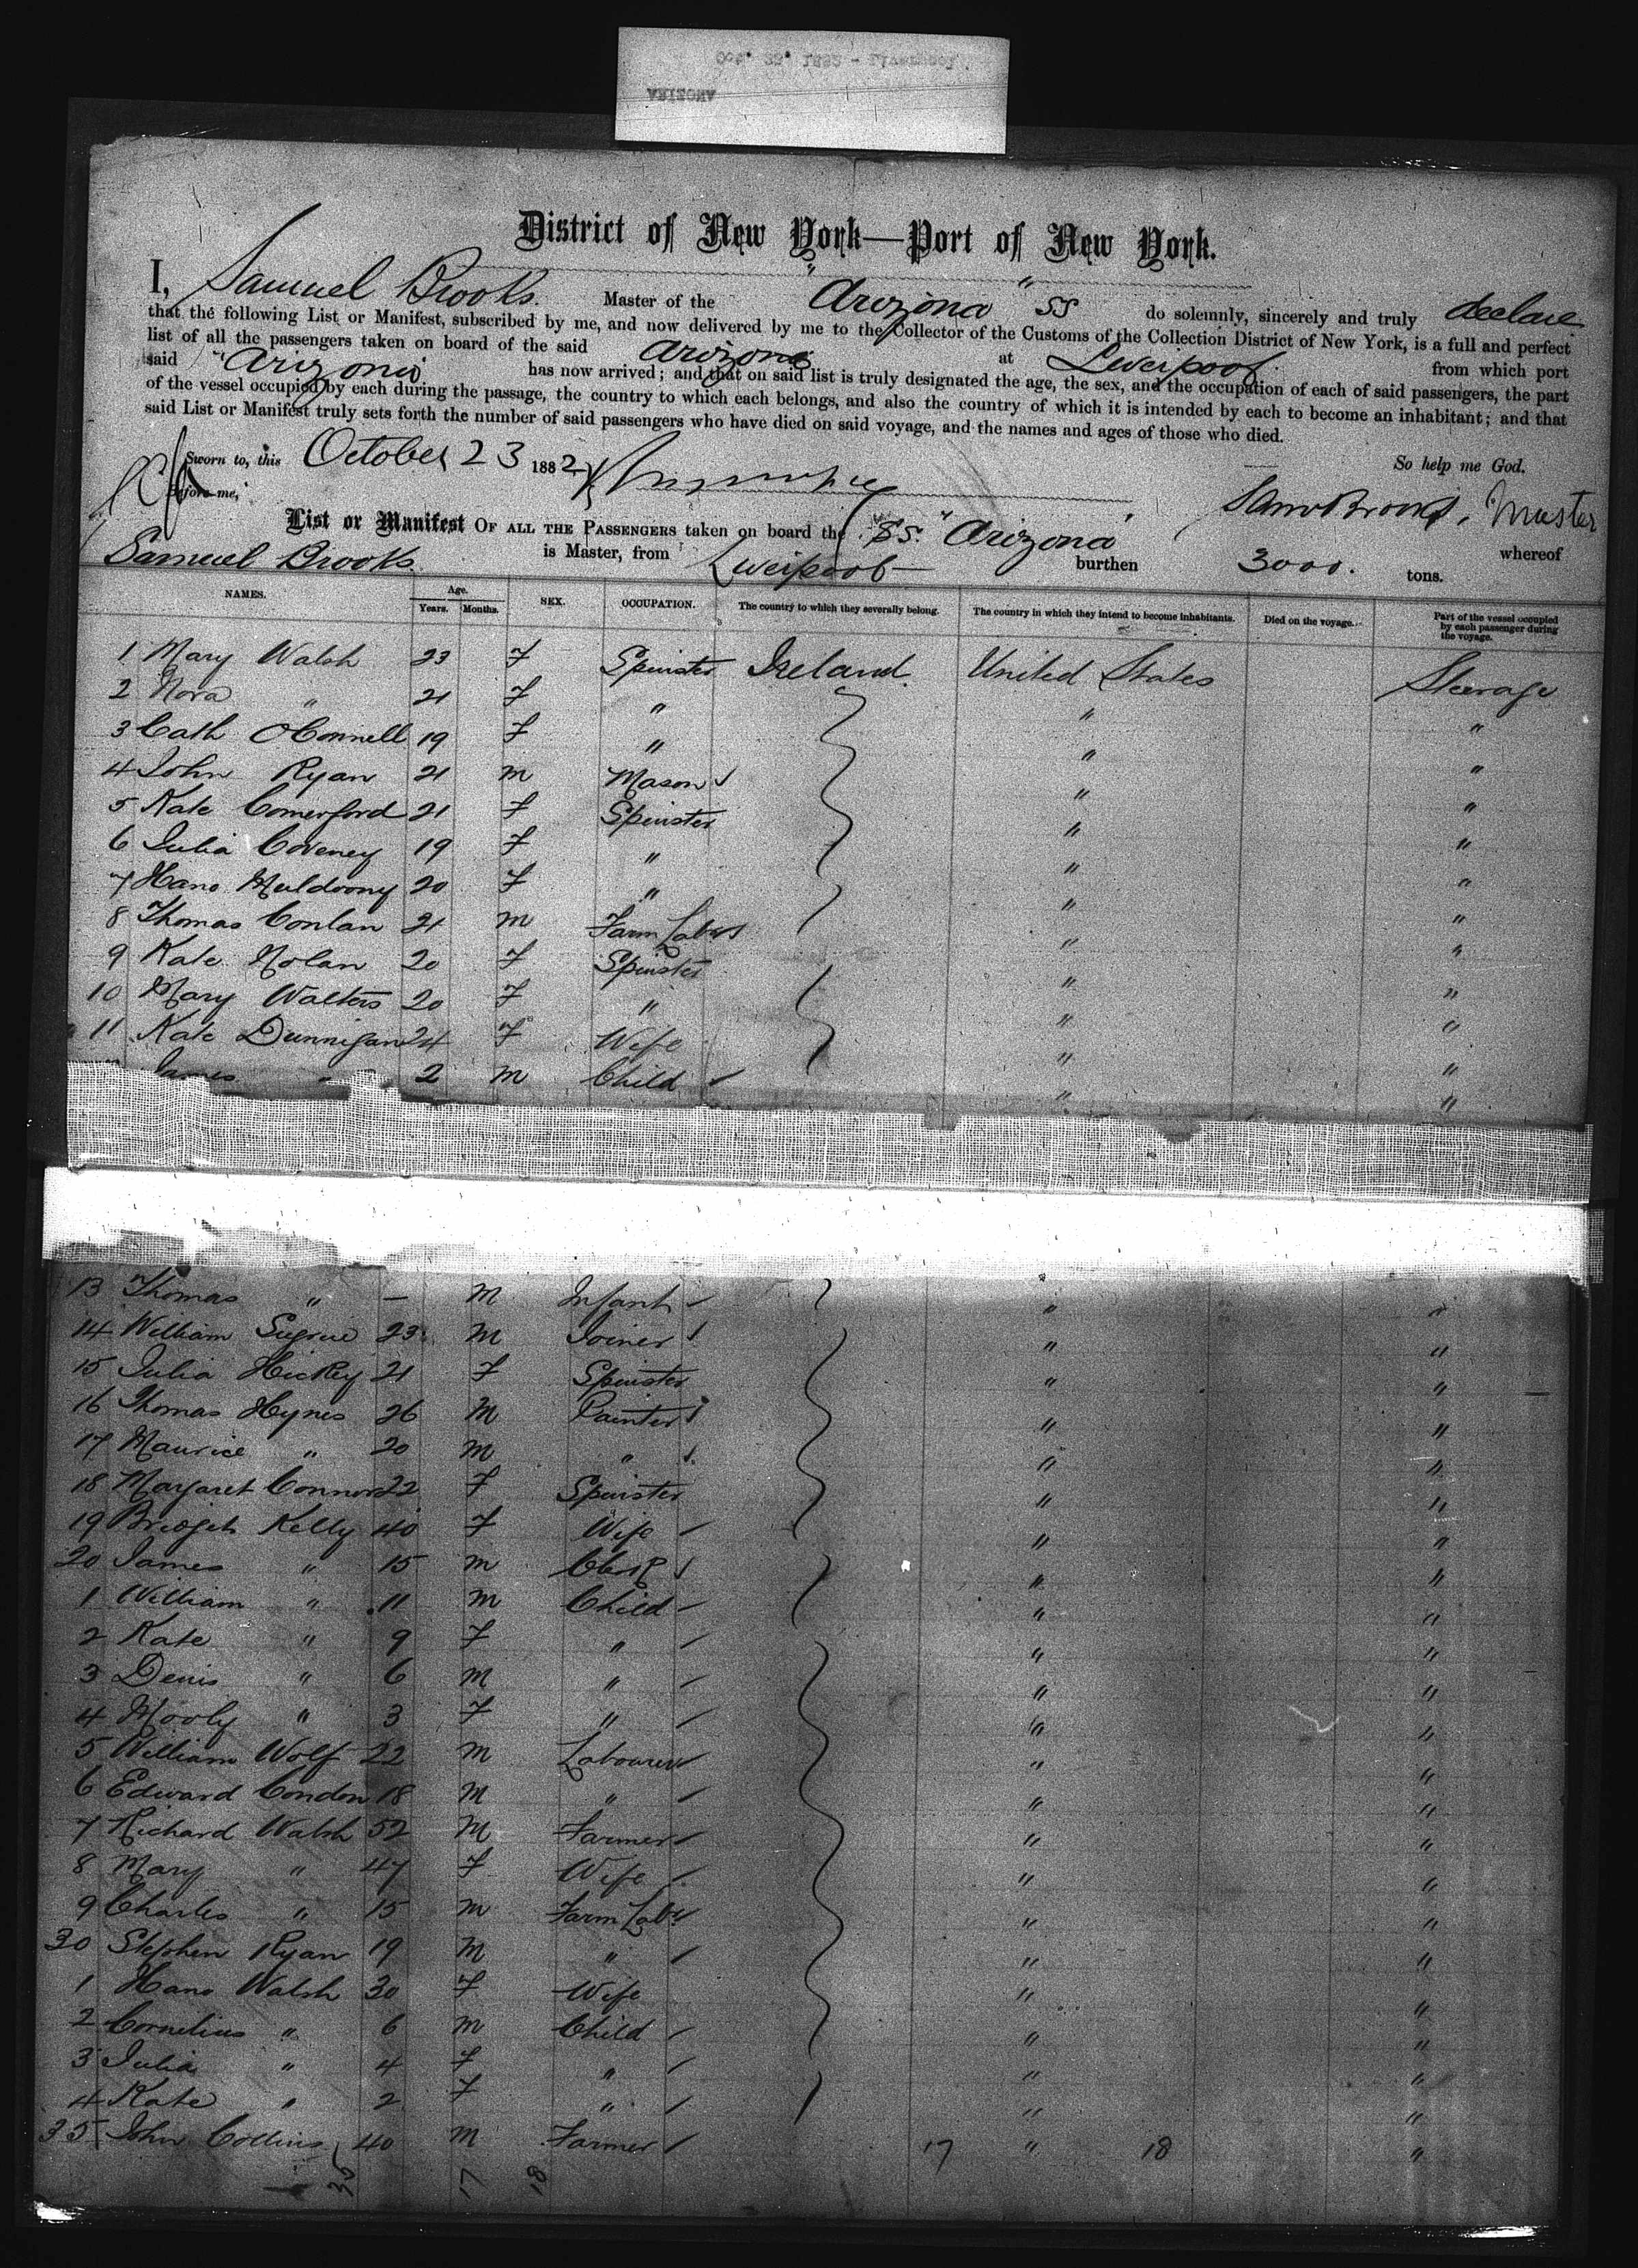 Oct. 23. 1882 - Liverpool.
ARIZONA
District of New York—Port of New York.
I, Samuel Brooks. Master of the "Arizona" SS do solemnly, sincerely and truly declare
that the following List or Manifest, subscribed by me, and now delivered by me to the Collector of the Customs of the Collection District of New York, is a full and perfect
list of all the passengers taken on board of the said Arizona at Liverpool. from which port
said "Arizona" has now arrived; and that on said list is truly designated the age, the sex, and the occupation of each of said passengers, the part
of the vessel occupied by each during the passage, the country to which each belongs, and also the country of which it is intended by each to become an inhabitant; and that
said List or Manifest truly sets forth the number of said passengers who have died on said voyage, and the names and ages of those who died.
Sworn to, this October 23 1882 So help me God.
Before me, Saml Brooks, Master
List or Manifest OF ALL THE PASSENGERS taken on board the SS. "Arizona" whereof
Samuel Brooks. is Master, from Liverpool burthen 3000. tons.
NAMES. Age. Years. Months. SEX. OCCUPATION. The country to which they severally belong. The country in which they intend to become inhabitants. Died on the voyage. Part of the vessel occupied by each passenger during the voyage.
1 Mary Walsh 23 F Spinster Ireland. United States Steerage
2 Nora " 21 F " " "
3 Cath OConnell 19 F " " "
4 John Ryan 21 M Mason " "
5 Kate Comerford 21 F Spinster " "
6 Julia Coveney 19 F " " "
7 Hano Muldoony 20 F " " "
8 Thomas Conlan 21 M Farm Labr " "
9 Kate Nolan 20 F Spinster " "
10 Mary Walters 20 F " " "
11 Kate Dunnigan 24 F Wife " "
James " 2 M Child " "
13 Thomas " — M Infant " "
14 William Sugrue 23 M Joiner " "
15 Julia Hickey 21 F Spinster " "
16 Thomas Hynes 26 M Painter " "
17 Maurice " 20 M " " "
18 Margaret Connor 22 F Spinster " "
19 Bridget Kelly 40 F Wife " "
20 James " 15 M Clerk " "
1 William " 11 M Child " "
2 Kate " 9 F " " "
3 Denis " 6 M " " "
4 Mooly " 3 F " " "
5 William Wolf 22 M Labourer " "
6 Edward Condon 18 M " " "
7 Richard Walsh 52 M Farmer " "
8 Mary " 47 F Wife " "
9 Charles " 15 M Farm Labr " "
30 Stephen Ryan 19 M " " "
1 Hano Walsh 30 F Wife " "
2 Cornelius " 6 M Child " "
3 Julia " 4 F " " "
4 Kate " 2 F " " "
35 John Collins 40 M Farmer 17 " 18 "
35 17 18